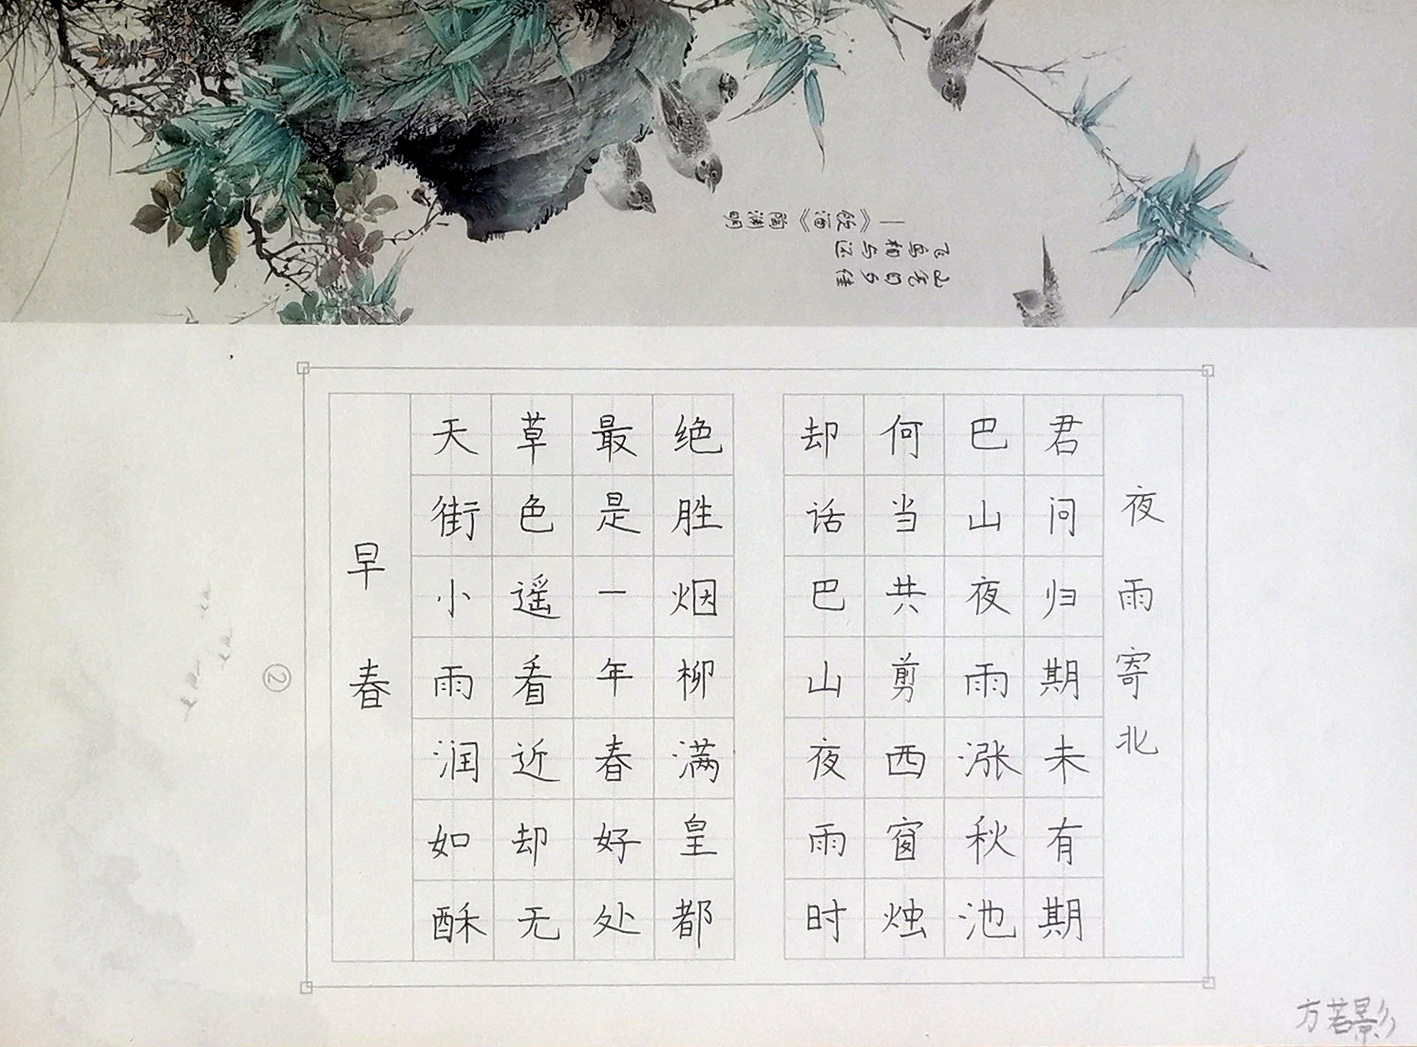 山气日夕佳
飞鸟相与还
—《饮酒》陶渊明
夜雨寄北
君问归期未有期
巴山夜雨涨秋池
何当共剪西窗烛
却话巴山夜雨时
早春
天街小雨润如酥
草色遥看近却无
最是一年春好处
绝胜烟柳满皇都
②
方若影